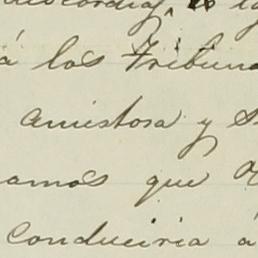 discordias, es la
á los Tribuna
amistosa y s
amos que
conduciria á